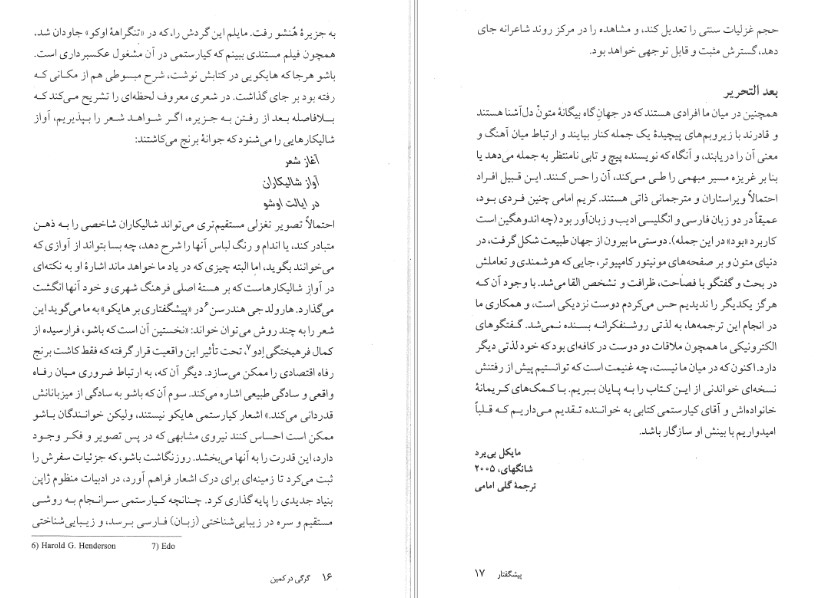 به جزیرهٔ هُنشو رفت. مایلم این گردش را، که در «تنگراههٔ اوکو» جاودان شد،
همچون فیلم مستندی ببینم که کیارستمی در آن مشغول عکسبرداری است.
باشو هرجا که هایکویی در کتابش نوشت، شرح مبسوطی هم از مکانی که
رفته بود بر جای گذاشت. در شعری معروف لحظه‌ای را تشریح می‌کند که
بلافاصله بعد از رفتن به جزیره، اگر شواهد شعر را بپذیریم، آواز
شالیکارهایی را می‌شنود که جوانهٔ برنج می‌کاشتند:
آغاز شعر
آواز شالیکاران
در ایالت اوشو
احتمالاً تصویر تغزلی مستقیم‌تری می‌تواند شالیکاران شاخصی را به ذهن
متبادر کند، یا اندام و رنگ لباس آنها را شرح دهد، چه بسا بتواند از آوازی که
می‌خوانند بگوید، اما البته چیزی که در یاد ما خواهد ماند اشارهٔ او به نکته‌ای
در آواز شالیکارهاست که بر هستهٔ اصلی فرهنگ شهری و خود آنها انگشت
می‌گذارد. هارولد جی هندرسن۶ در «پیشگفتاری بر هایکو» به ما می‌گوید این
شعر را به چند روش می‌توان خواند: «نخستین آن است که باشو، فرارسیده از
کمال فرهیختگی اِدو۷، تحت تأثیر این واقعیت قرار گرفته که فقط کاشت برنج
رفاه اقتصادی را ممکن می‌سازد. دیگر آن که، به ارتباط ضروری میان رفاه
واقعی و سادگی طبیعی اشاره می‌کند. سوم آن که باشو به سادگی از میزبانانش
قدردانی می‌کند.» اشعار کیارستمی هایکو نیستند، ولیکن خوانندگان باشو
ممکن است احساس کنند نیروی مشابهی که در پس تصویر و فکر وجود
دارد، این قدرت را به آنها می‌بخشد. روزنگاشت باشو، که جزئیات سفرش را
ثبت می‌کرد تا زمینه‌ای برای درک اشعار فراهم آورد، در ادبیات منظوم ژاپن
بنیاد جدیدی را پایه‌گذاری کرد. چنانچه کیارستمی سرانجام به روشی
مستقیم و سره در زیبایی‌شناختی (زبان) فارسی برسد، و زیبایی‌شناختی
6) Harold G. Henderson 7) Edo
۱۶ گرگی در کمین
حجم غزلیات سنتی را تعدیل کند، و مشاهده را در مرکز روند شاعرانه جای
دهد، گسترش مثبت و قابل توجهی خواهد بود.
بعد التحریر
همچنین در میان ما افرادی هستند که در جهانِ گاه بیگانهٔ متونْ دل‌آشنا هستند
و قادرند با زیروبم‌های پیچیدهٔ یک جمله کنار بیایند و ارتباط میان آهنگ و
معنی آن را دریابند، و آنگاه که نویسنده پیچ و تابی نامنتظر به جمله می‌دهد یا
بنا بر غریزه مسیر مبهمی را طی می‌کند، آن را حس کنند. این قبیل افراد
احتمالاً ویراستاران و مترجمانی ذاتی هستند. کریم امامی چنین فردی بود،
عمیقاً در دو زبان فارسی و انگلیسی ادیب و زبان‌آور بود (چه اندوهگین است
کاربرد «بود» در این جمله). دوستی ما بیرون از جهان طبیعت شکل گرفت، در
دنیای متون و بر صفحه‌های مونیتور کامپیوتر، جایی که هوشمندی و تعاملش
در بحث و گفتگو با فصاحت، ظرافت و تشخص القا می‌شد. با وجود آن که
هرگز یکدیگر را ندیدیم حس می‌کردم دوست نزدیکی است، و همکاری ما
در انجام این ترجمه‌ها، به لذتی روشنفکرانه بسنده نمی‌شد. گفتگوهای
الکترونیکی ما همچون ملاقات دو دوست در کافه‌ای بود که خود لذتی دیگر
دارد. اکنون که در میان ما نیست، چه غنیمت است که توانستیم پیش از رفتنش
نسخه‌ای خواندنی از این کتاب را به پایان ببریم. با کمک‌های کریمانهٔ
خانواده‌اش و آقای کیارستمی کتابی به خواننده تقدیم می‌داریم که قلباً
امیدواریم با بینش او سازگار باشد.
مایکل بی‌یرد
شانگهای، ۲۰۰۵
ترجمهٔ گلی امامی
پیشگفتار ۱۷